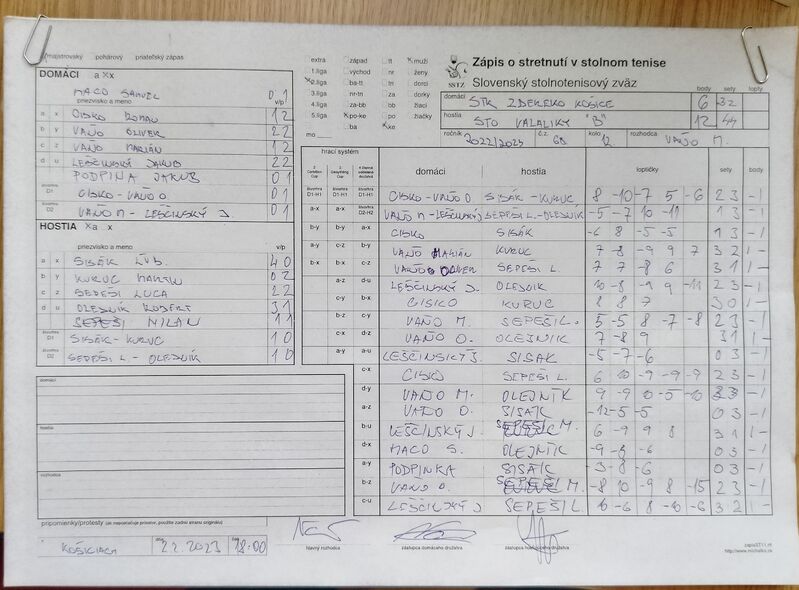 majstrovský pohárový priateľský zápas
DOMÁCI a x
MACO SAMUEL 0 1
priezvisko a meno v/p
a x CISKO ROMAN 1 2
b y VAŇO OLIVER 2 2
c z VAŇO MARIÁN 1 2
d u LEŠČINSKÝ JAKUB 2 2
PODPINKA JAKUB 0 1
D1 CISKO - VAŇO O. 0 1
D2 VAŇO M - LEŠČINSKÝ J. 0 1
HOSTIA a x
priezvisko a meno v/p
a x SISÁK ĽUB. 4 0
b y KURUC MARTIN 0 2
c z SEPEŠI LUCA 2 2
d u OLEJNÍK RÓBERT 3 1
SEPEŠI MILAN 1 1
D1 SISÁK - KURUC 1 0
D2 SEPEŠI L. - OLEJNÍK 1 0
extra západ tt muži
1.liga východ nr ženy
2.liga ba-tt tn dorci
3.liga nr-tn za dorky
4.liga za-bb bb žiaci
5.liga po-ke po žiačky
mo ba ke
Zápis o stretnutí v stolnom tenise
SSTZ Slovenský stolnotenisový zväz
body sety lopty
domáci STK ZDENSKO KOŠICE 6 32
hostia STO VALALIKY "B" 12 44
ročník 2022/2023 č.z. 68 kolo 12 rozhodca VAŇO M.
hrací systém
domáci hostia loptičky sety body
D1-H1 D1-H1 D1-H1 CISKO - VAŇO O. SISÁK - KURUC 8 -10 -7 5 -6 2 3 - 1
a-x a-x D2-H2 VAŇO M - LEŠČINSKÝ SEPEŠI L. - OLEJNÍK -5 -7 10 -11 1 3 - 1
b-y b-y a-x CISKO SISÁK -6 8 -5 -5 1 3 - 1
a-y c-z b-y VAŇO MARIÁN KURUC 7 -8 -9 9 7 3 2 1 -
b-x b-x c-z VAŇO OLIVER SEPEŠI L. 7 7 -8 6 3 1 1 -
a-z d-u LEŠČINSKÝ J. OLEJNÍK 10 -8 -9 9 -11 2 3 - 1
c-y b-x CISKO KURUC 8 8 7 3 0 1 -
b-z c-y VAŇO M. SEPEŠI L. 5 -5 8 -7 -8 2 3 - 1
c-x d-z VAŇO O. OLEJNÍK 7 -8 9 3 1 1 -
a-y a-u LEŠČINSKÝ J. SISÁK -5 -7 -6 0 3 - 1
c-x CISKO SEPEŠI L. 6 10 -9 -9 -9 2 3 - 1
d-y VAŇO M. OLEJNÍK 9 -9 10 -5 -10 2 3 - 1
a-z VAŇO O. SISÁK -12 -5 -5 0 3 - 1
b-u LEŠČINSKÝ J. SEPEŠI M. 6 -9 9 8 3 1 1 -
d-x MACO S. OLEJNÍK -9 -8 -6 0 3 - 1
a-y PODPINKA SISÁK -3 -8 -6 0 3 - 1
b-z VAŇO O. SEPEŠI M. -8 10 -9 8 -15 2 3 - 1
c-u LEŠČINSKÝ J SEPEŠI L. 10 -6 8 -10 -6 3 2 1 -
domáci
hostia
rozhodca
pripomienky/protesty (ak nepostačuje priestor, použite zadnú stranu originálu)
v KOŠICIACH dňa 2.2.2023 čas 18:00
hlavný rozhodca zástupca domáceho družstva zástupca hosťujúceho družstva
zapisST11.rtf
http://www.michalko.sk